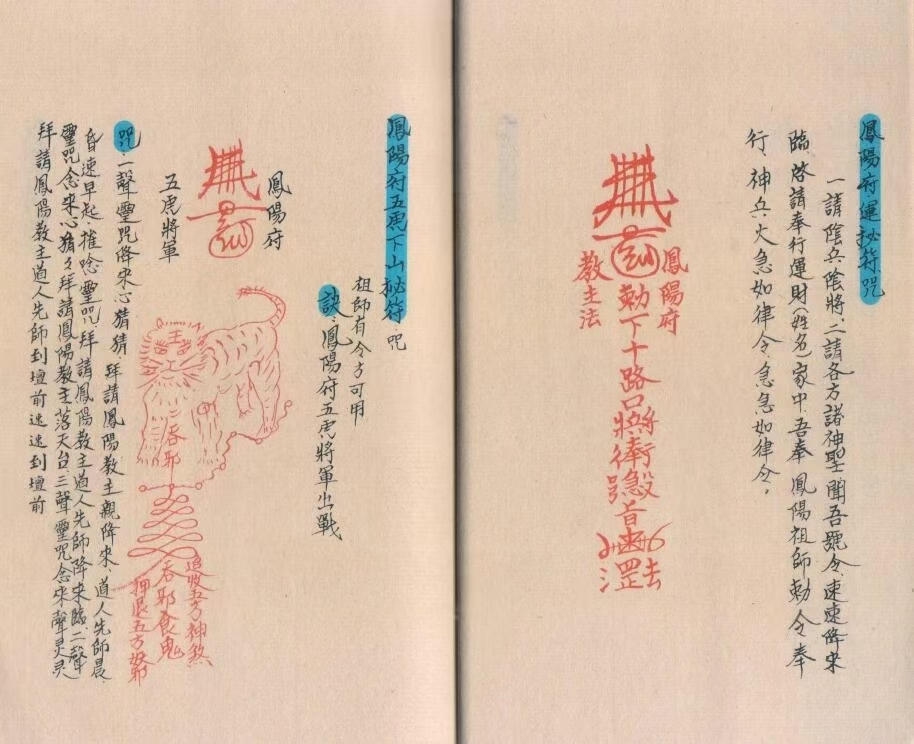 鳳陽府運秘符咒
一請陰兵陰將、二請各方諸神聖、聞吾號令、速速降來
臨、啓請奉行運財(姓名)家中、吾奉 鳳陽祖師勅令奉
行、神兵火急如律令、急急如律令。
鳳陽府
教主法
勅下十路口將
鳳陽府五虎下山祕符咒
祖師有令方可用
訣、鳳陽府五虎將軍出戰
鳳陽府
五虎將軍
王
吞邪
追收五方神煞
吞邪食鬼
押退五方邪
咒、一聲靈咒降來心猜猜、拜請鳳陽教主親降來、道人先師晨、
昏速早起、摧唸靈咒拜請鳳陽教主道人先師降來臨、二聲
靈咒念來心猜々拜請鳳陽教主落天台、三聲靈咒念來聲灵灵
拜請鳳陽教主道人先師到壇前速速到壇前